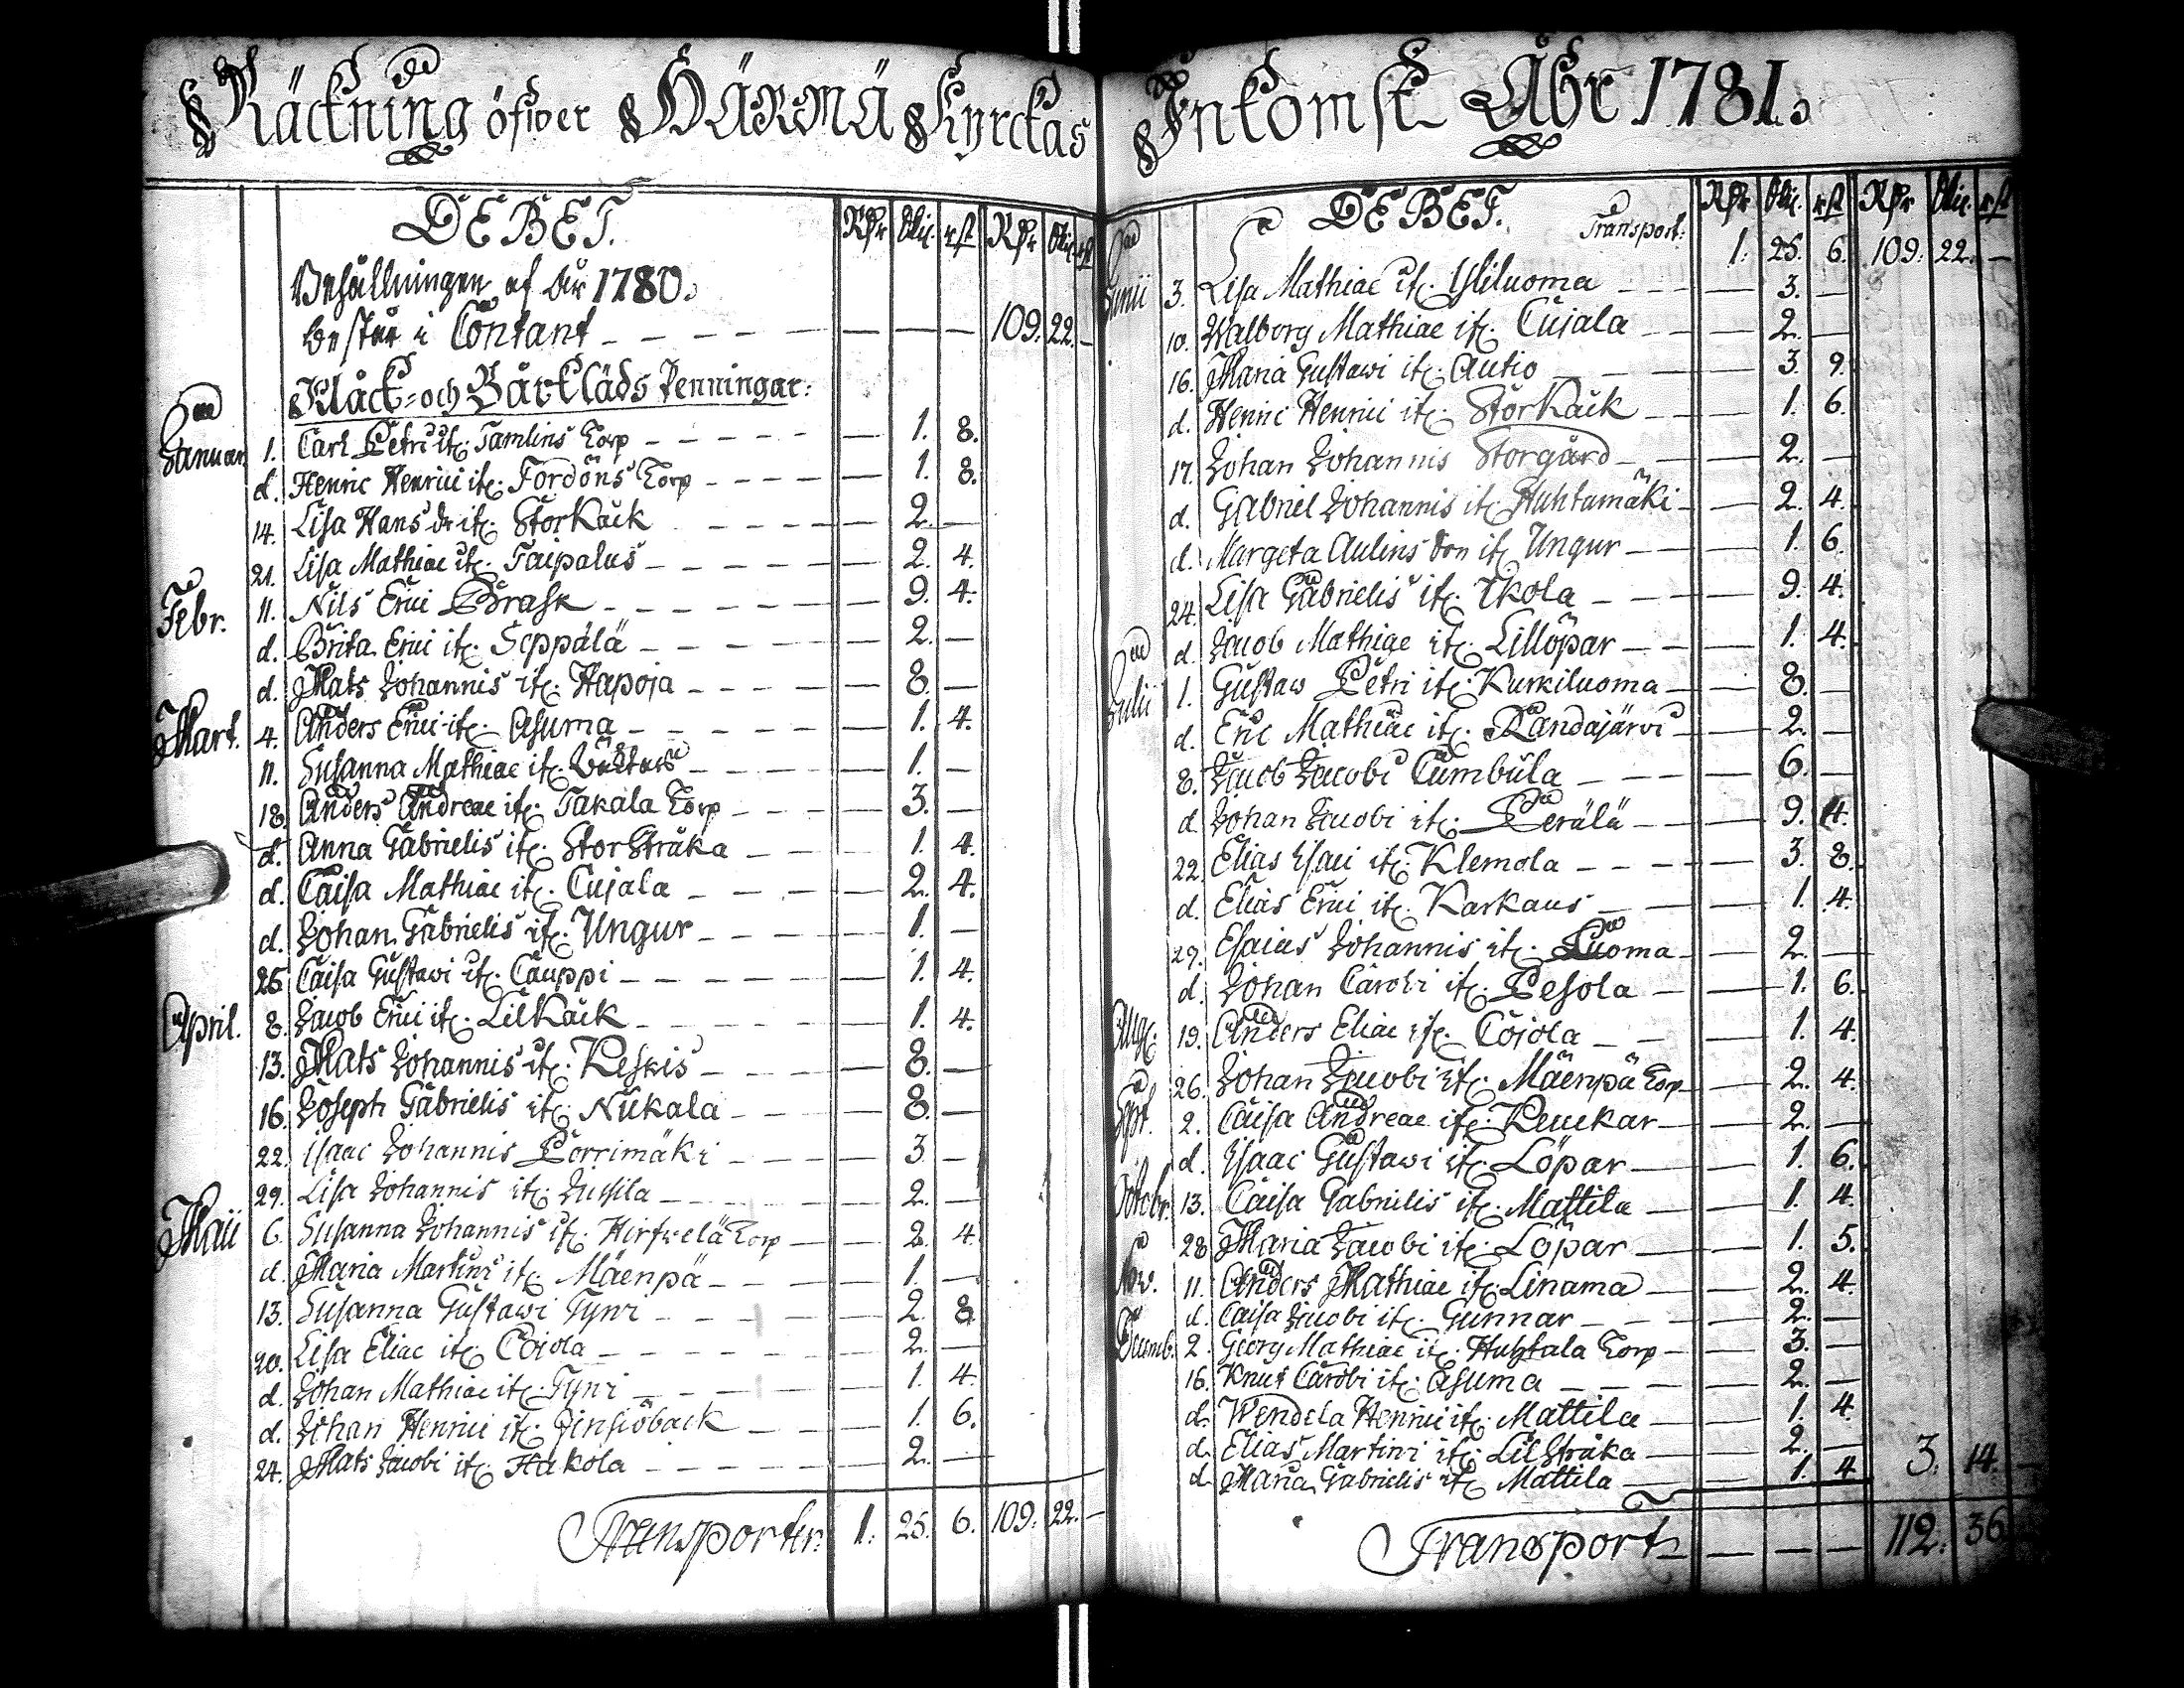 Räckning öfwer HÄRMÄ Kyrckas Inkomst Åhr 1781.
DEBET. Rdr Skil. rst Rdr Skil. rst
Behållningen af År 1780.
består i Contant — — — 109. 22. —
Klåck- och Bårkläds Penningar:
Januar. 1. Carl Petri it. Tamlins Torp — 1. 8.
d. Henric Henrici it. Fordöns Torp — 1. 8.
14. Lisa Hans dr it. StorKack — 2. —
21. Lisa Mathiae it. Taipalus — 2. 4.
Febr. 11. Nils Erici Brask — 9. 4.
d. Brita Erici it. Seppälä — 2. —
d. Mats Johannis it. Hapoja — 8. —
Mart. 4. Anders Erici it. Asuma — 1. 4.
11. Susanna Mathiae it. — 1. —
18. Anders Andreae it. Takala Torp — 3. —
d. Anna Gabrielis it. StorStråka — 1. 4.
d. Caisa Mathiae it. Cujala — 2. 4.
d. Johan Gabrielis it. Ungur — 1. —
25. Caisa Gustavi it. Cauppi — 1. 4.
April. 8. Jacob Erici it. LilKack — 1. 4.
13. Mats Johannis it. Keskis — 8. —
16. Joseph Gabrielis it. Niikala — 8. —
22. Isaac Johannis Porrimäki — 3. —
29. Lisa Johannis it. Jussila — 2. —
Maii 6. Susanna Johannis it. Hirfwelä Torp — 2. 4.
d. Maria Martini it. Mäenpä — 1. —
13. Susanna Gustawi Tyni — 2. 8.
20. Lisa Eliae it. Cojola — 2. —
d. Johan Mathiae it. Tyni — 1. 4.
d. Johan Henrici it. Finsiöback — 1. 6.
24. Mats Jacobi it. Hakola — 2. —
Transporter: 1. 25. 6. 109. 22. —
DEBET. Transport: Rdr Skil. rst Rdr Skil. rst
1. 25. 6. 109. 22. —
Junii 3. Lisa Mathiae it. Yliluoma — 3. —
10. Walborg Mathiae it. Cujala — 2. —
16. Maria Gustawi it. Autio — 3. 9.
d. Henric Henrici it. StorKack — 1. 6.
17. Johan Johannis Storgård — 2. —
d. Gabriel Johannis it. Huhtamäki — 2. 4.
d. Margeta Aulins don it. Ungur — 1. 6.
24. Lisa Gabrielis it. Ikola — 9. 4.
d. Jacob Mathiae it. Lillöpar — 1. 4.
Julii 1. Gustaw Petri it. Kurkiluoma — 8. —
d. Eric Mathiae it. Randajärvi — 2. —
8. Jacob Jacobi Cumbula — 6. —
d. Johan Jacobi it. Perälä — 9. 4.
22. Elias Esaei it. Klemola — 3. 8.
d. Elias Erici it. Karkaus — 1. 4.
29. Esaias Johannis it. Luoma — 2. —
d. Johan Caroli it. Pesola — 1. 6.
Aug. 19. Anders Eliae it. Cojola — 1. 4.
26. Johan Jacobi it. Mäenpä Torp — 2. 4.
Sept. 2. Caisa Andreae it. Reuckar — 2. —
d. Isaac Gustawi it. Löpar — 1. 6.
Octobr. 13. Caisa Gabrielis it. Mattila — 1. 4.
28. Maria Jacobi it. Löpar — 1. 5.
Nov. 11. Anders Mathiae it. Linama — 2. 4.
d. Caisa Jacobi it. Gunnar — 2. —
Decemb. 2. Georg Mathiae it. Huhtala Torp — 3. —
16. Knut Carobi it. Asuma — 2. —
d. Wendela Henrici it. Mattila — 1. 4.
d. Elias Martini it. LilStråka — 2. —
d. Maria Gabrielis it. Mattila — 1. 4. 3. 14. —
Transport — — — 112. 36